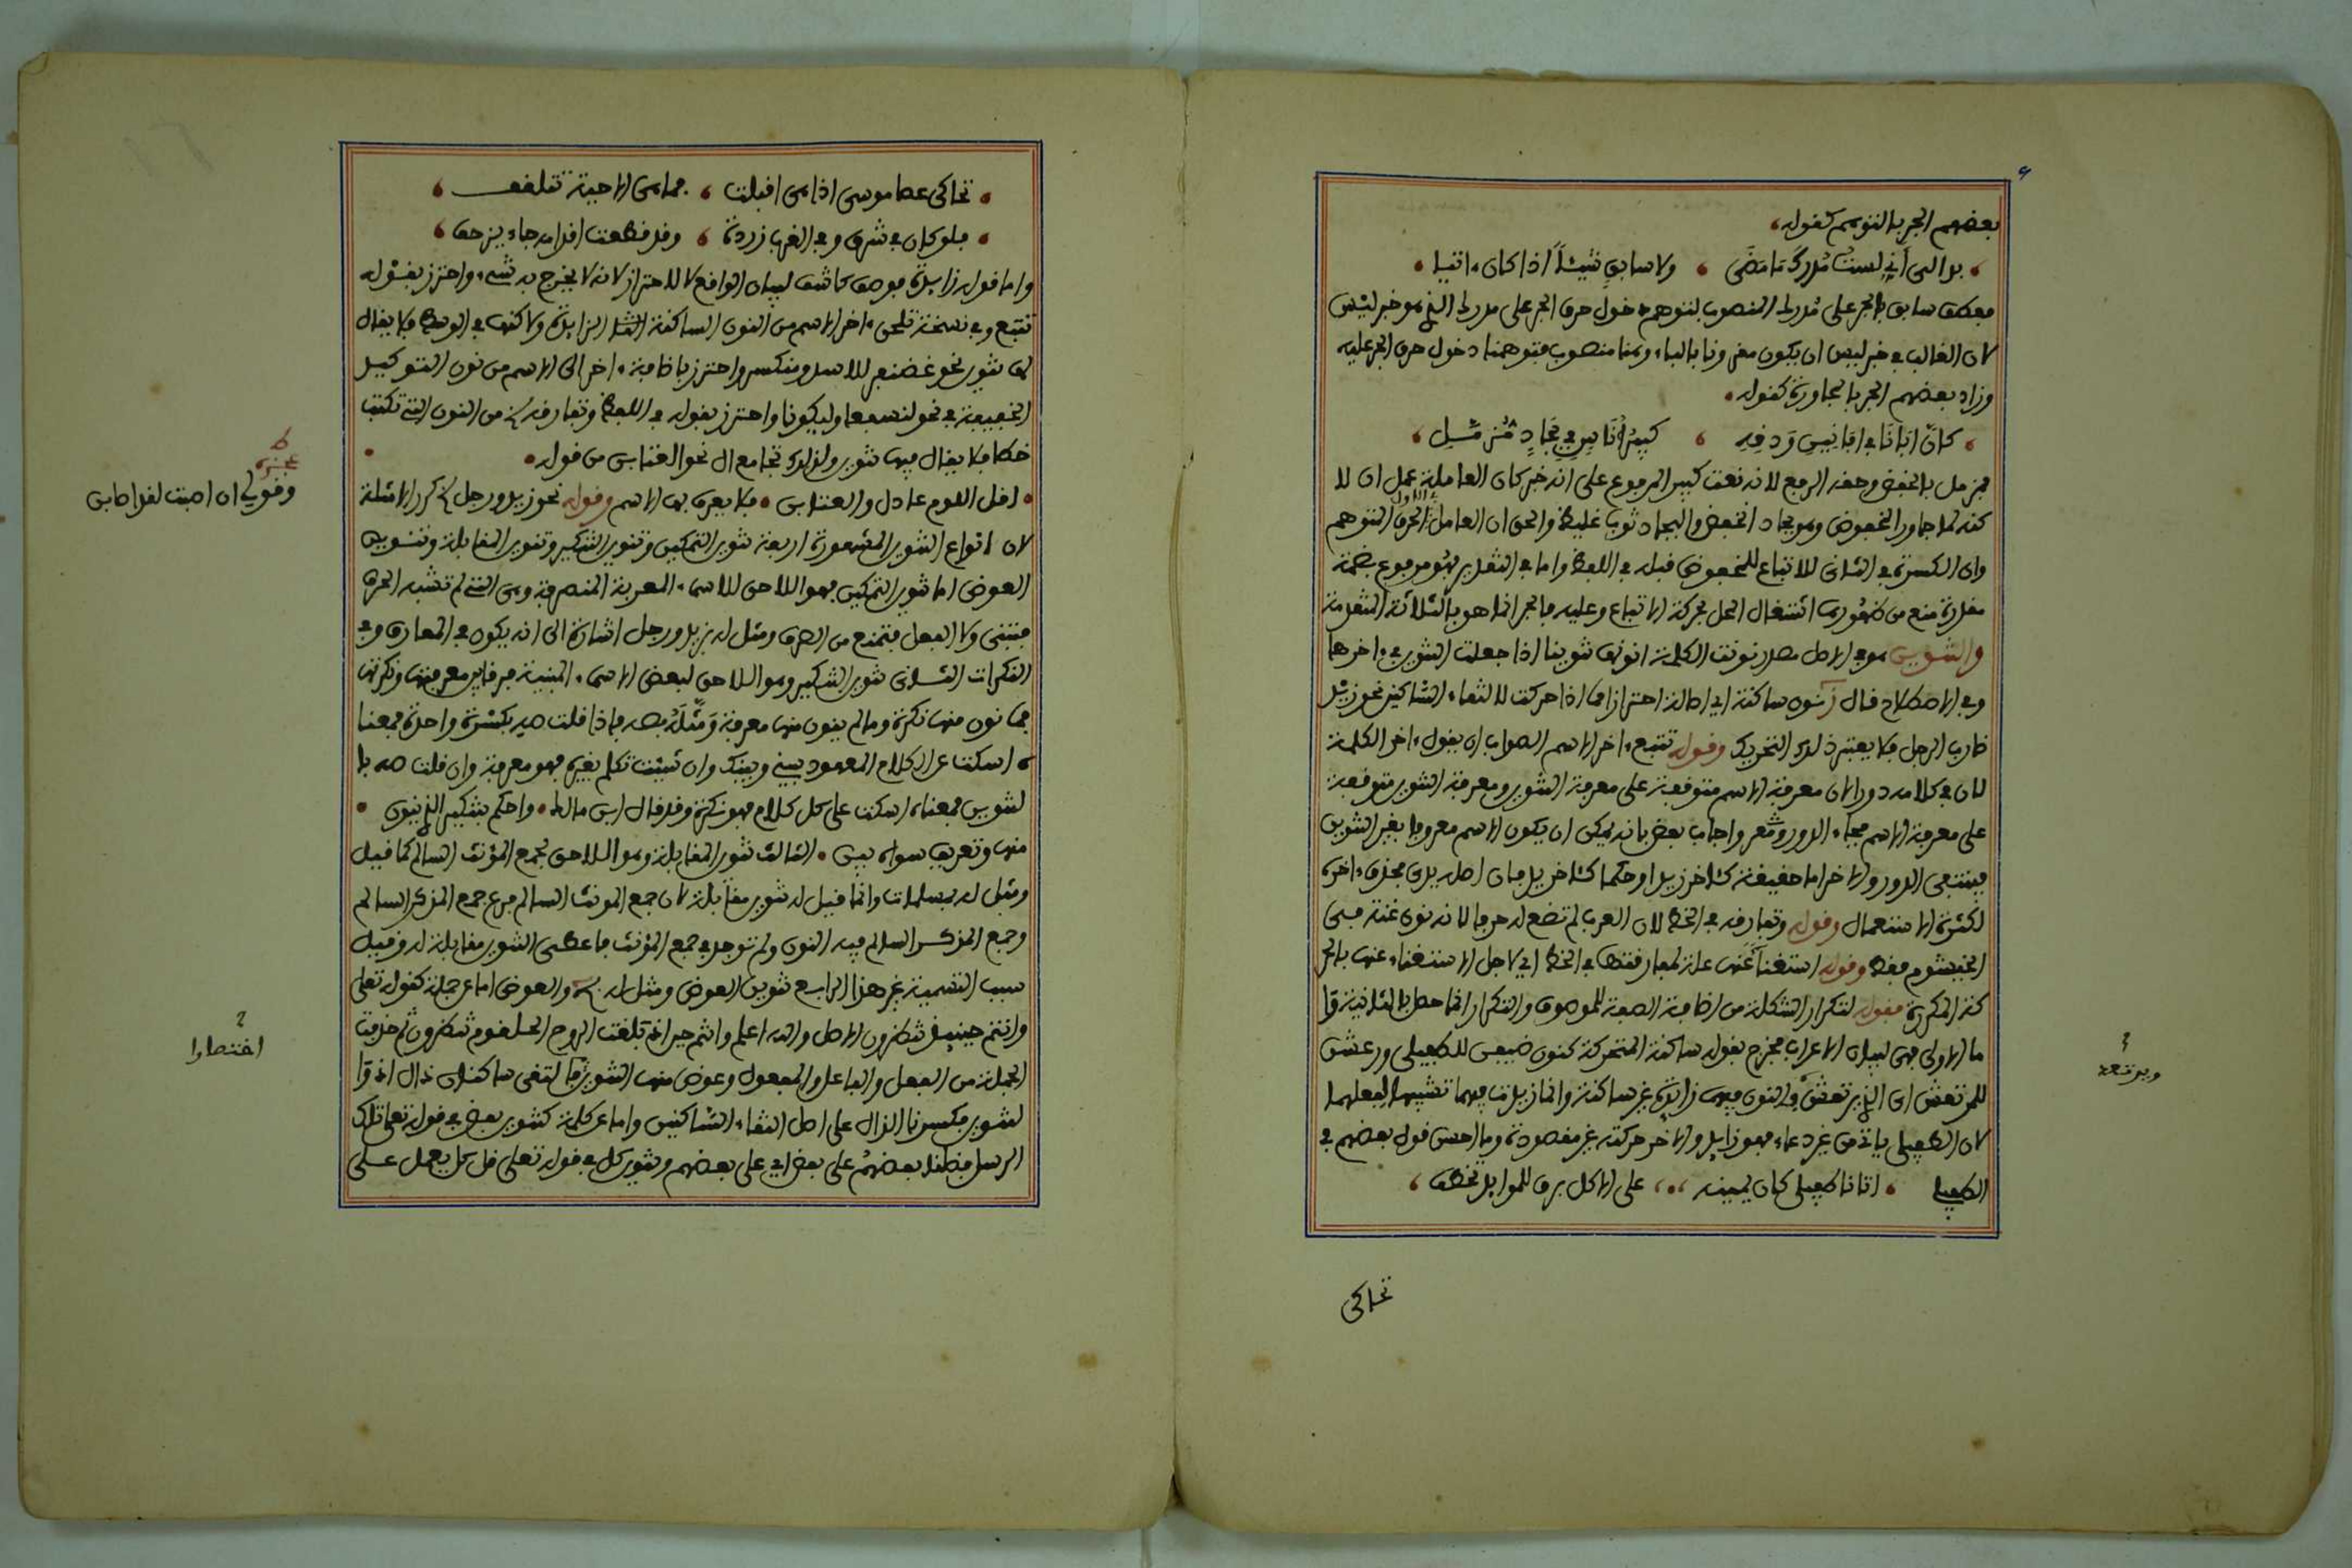 بعضهم الجر بالتوهم كقوله
بدا لي أني لست مدرك ما مضى ولا سابق شيئا اذا كان ءاتيا
فعطف سابق بالجر على مدرك المنصوب لتوهم دخول حرف الجر على مدرك الذي هو خبر ليس
لان الغالب في خبر ليس ان يكون مقرونا بالباء وهنا منصوب فتوهمنا دخول حرف الجر عليه
وزاد بعضهم الجر بالمجاورة كقوله
كان ابانا في افانين ودفه كبير أناس في بجاد مزمل
فمزمل بالخفض وحقه الرفع لانه نعت كبير المرفوع على انه خبر كان العاملة عمل ان لا
كنه لما جاور المخفوض وهو بجاد انخفض والبجاد ثوب غليظ والحق ان العامل في الاول الحرف المتوهم
وان الكسرة في الثاني للاتباع للمخفوض قبله في اللفظ واما في التقدير فهو مرفوع بضمة
مقدرة منع من ظهورها اشتغال المحل بحركة الاتباع وعليه فالجر انما هو بالثلاثة المتقدمة
والتنوين هو في الاصل مصدر نونت الكلمة انونها تنوينا اذا جعلت التنوين في ءاخرها
وفي الاصطلاح قال نون ساكنة اي اصالة احترازا مما اذا حركت لالتقاء الساكنين نحو زيد
ضارب الرجل فلا يعتبر ذلك التحريك وقوله تتبع ءاخر الاسم الصواب ان يقول ءاخر الكلمة
لان في كلامه دورا لان معرفة الاسم متوقفة على معرفة التنوين ومعرفة التنوين متوقفة
على معرفة الاسم فجاء الدور وشعر واجاب بعض بانه يمكن ان يكون الاسم معروفا بغير التنوين
فينتفي الدور والاخر اما حقيقة كئاخر زيد او حكما كئاخر يد فان اصله يدي بحذف ءاخره
لكثرة الاستعمال وقوله وتفارقه في الخط لان العرب لم تضع له حرفا لانه نون غنة فهي
الخيشوم فقط وقوله استغناء عنها علة لمفارقتها في الخط اي لاجل الاستغناء عنها بالحر
كة المكررة فقوله لتكرار الشكلة من اضافة الصفة للموصوف والتكرار انما حصل بالثانية وا
ما الاولى فهي لبيان الاعراب فخرج بقوله ساكنة المتحركة كنون ضيفن للطفيلي ورعشن
للمرتعش اي الذي يرتعش والنون فيهما زائدة غير ساكنة وانما زيدت فيهما تشبيها لفعلهما
لان الطفيلي ياتي من غير دعاء فهو زايد والاخر حركته غير مقصودة وما احسن قول بعضهم في
الطفيلي اتانا طفيلي كان يمينه على الاكل برق للموايد تخطف
تحاكي
ويرتعد
تحاكي عصا موسى اذا هي اقبلت فما هي الا حية تتلقف
فلو كان في شرق وفي الغرب زردة وقد قطعت اقدامه جاء يزحف
واما قوله زايدة فوصف كاشف لبيان الواقع لا للاحتراز لانه لا يخرج به شيء واحترز بقوله
تتبع وفي نسخة تلحق ءاخر الاسم من النون الساكنة الزايدة ولاكنها في الوسط فلا يقال
لها تنوين نحو غضنفر للاسد ومنكسر واحترز باضافة ءاخر الى الاسم من نون التوكيد
الخفيفة في نحو لنسفعا وليكونا واحترز بقوله في اللفظ وتفارقه من النون التي تكتب
خطا فلا يقال فيها تنوين ولذلك تجامع ال نحو العتابن من قوله
اقل اللوم عاذل والعتابن فلا يعرف بها الاسم وقوله نحو زيد ورجل كرر الامثلة
لان انواع التنوين المشهورة اربعة تنوين التمكين وتنوين التنكير وتنوين المقابلة وتنوين
العوض اما تنوين التمكين فهو اللاحق للاسماء المعربة المنصرفة وهي التي لم تشبه الحرف
فتبنى ولا الفعل فتمنع من الصرف ومثل له بزيد ورجل اشارة الى انه يكون في المعارف وفي
النكرات الثاني تنوين التنكير وهو اللاحق لبعض الاسماء المبنية فرقا بين معرفتها ونكرتها
فما نون منها نكرة وما لم ينون منها معرفة ومثله بصه فاذا قلت صه بكسرة واحدة فمعنا
ه اسكت عن الكلام المعهود بيني وبينك وان شئت تكلم بغيره فهو معرفة وان قلت صه با
لتنوين فمعناه اسكت على كل كلام فهو نكرة وقد قال ابن مالك واحكم بتنكير الذي ينون
منها وتعريف سواه بين الثالث تنوين المقابلة وهو اللاحق لجمع المؤنث السالم كما قيل
ومثل له بمسلمات وانما قيل له تنوين مقابلة لان جمع المونث السالم فرع جمع المذكر السالم
وجمع المذكر السالم فيه النون ولم توجد في جمع المؤنث فاعطي التنوين مقابلة له وقيل
سبب التسمية غير هذا الرابع تنوين العوض ومثل له والعوض اما عن جملة كقوله تعلى
وانتم حينئذ تنظرون الاصل والله اعلم وانتم حين اذ بلغت الروح الحلقوم تنظرون ثم حذفت
الجملة من الفعل والفاعل والمفعول وعوض منها التنوين فالتقى ساكنان ذال اذ وا
لتنوين فكسرنا الذال على اصل التقاء الساكنين واما عن كلمة كتنوين بعض في قوله تعلى تلك
الرسل فضلنا بعضهم على بعض اي على بعضهم وتنوين كل في قوله تعلى قل كل يعمل على
وقولي ان اصبت لقد اصابن
اختصارا